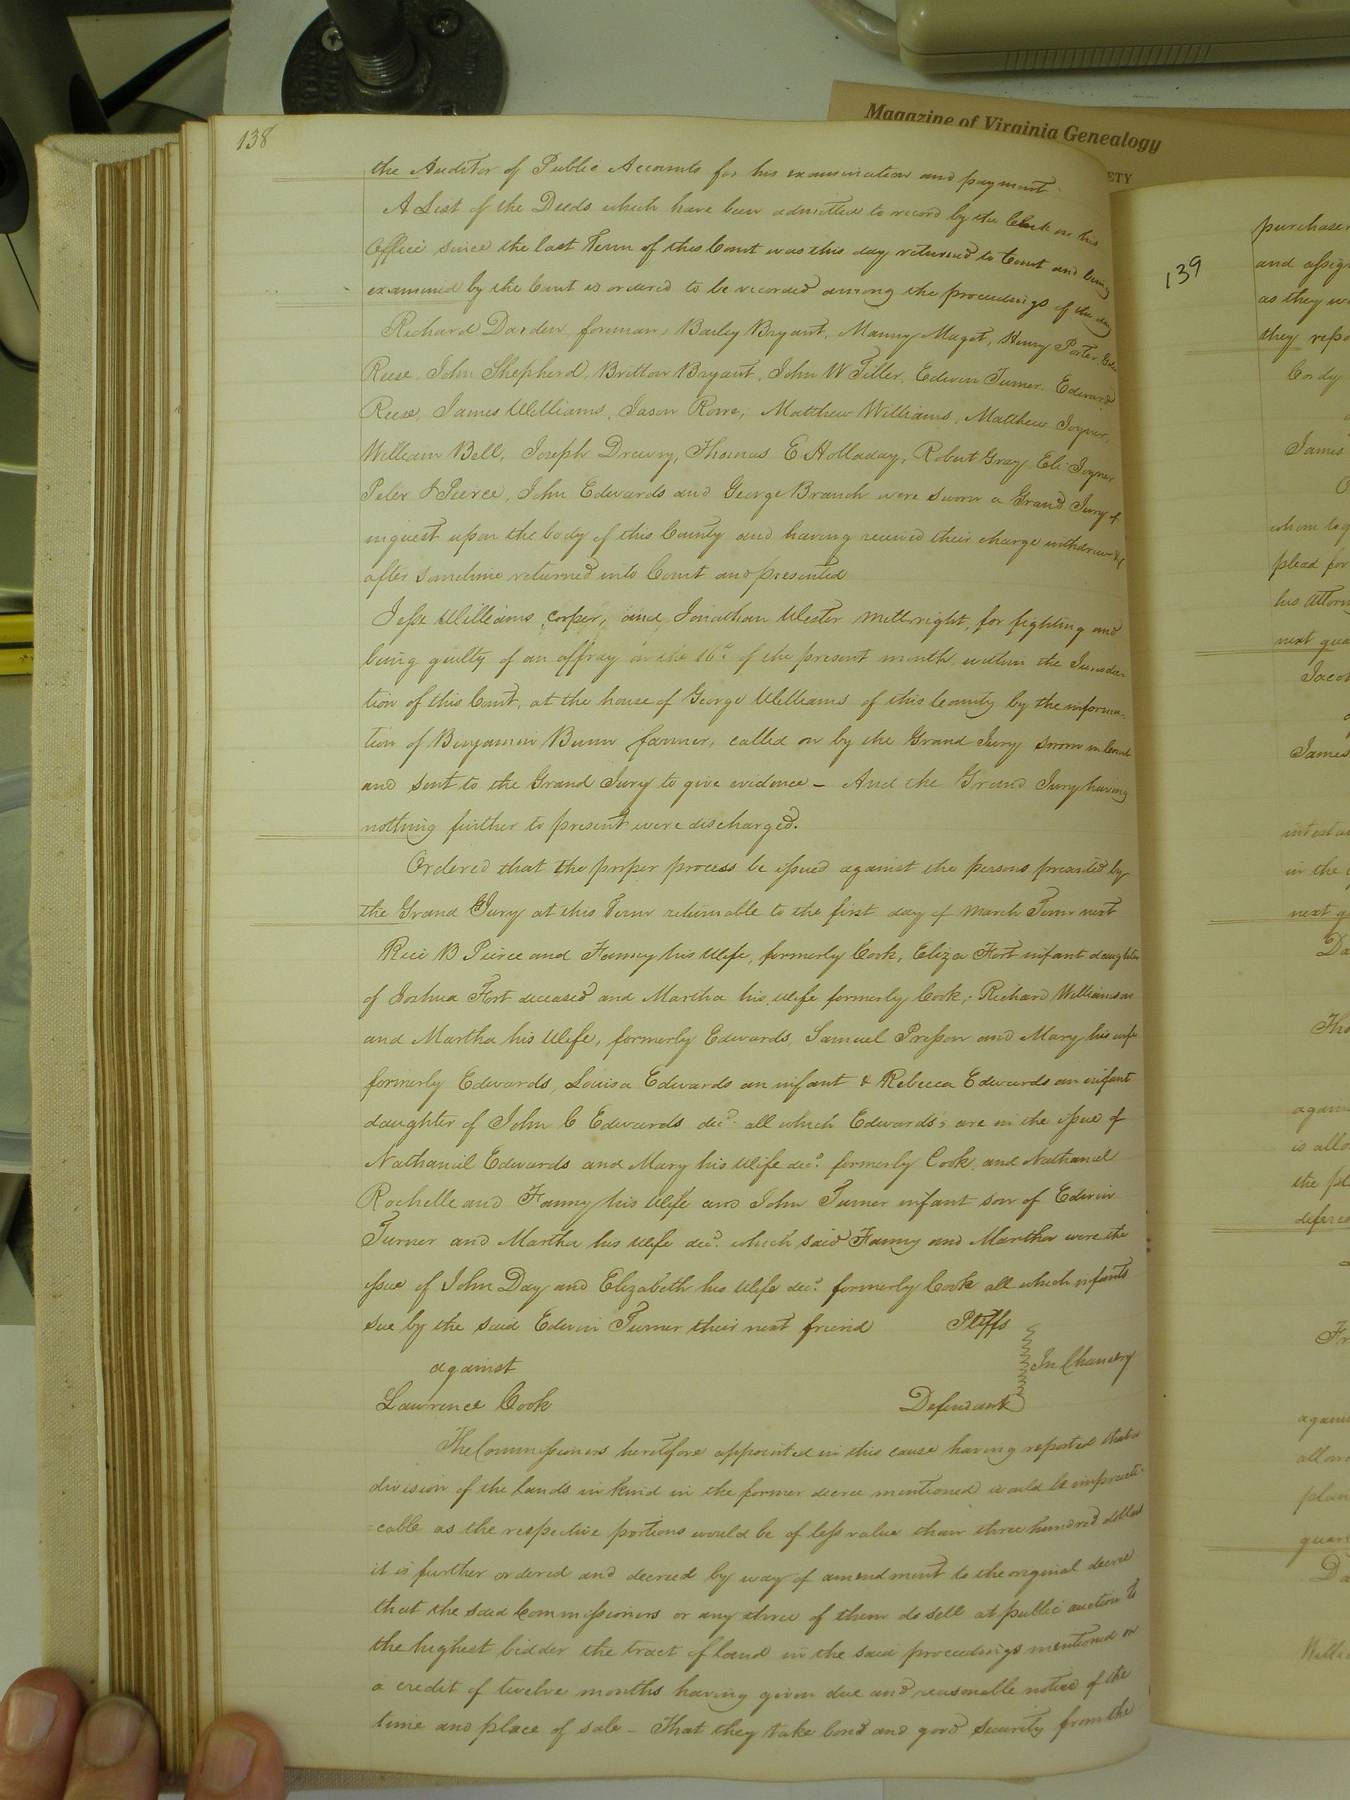 Magazine of Virginia Genealogy
ETY
138
the Auditor of Public Accounts for his examination and payment.
A List of the Deeds which have been admitted to record by the Clerk in his
Office since the last Term of this Court was this day returned to Court and being
examined by the Court is ordered to be recorded among the proceedings of this day
Richard Darden foreman, Bailey Bryant, Manny Maget, Henry Porter,
Reese, John Shepherd, Britton Bryant, John W Tiller, Edwin Turner, Edward
Reese, James Williams, Jason Rowe, Matthew Williams, Matthew Joyner,
William Bell, Joseph Drewry, Thomas E Holladay, Robert Gray, Eli Joyner
Peter J Pierce, John Edwards and George Branch were sworn a Grand Jury of
inquest upon the body of this County and having received their charge withdrew &
after sometime returned into Court and presented
Jesse Williams, cooper, and Jonathan Wester millwright, for fighting and
being guilty of an affray on the 16th of the present month within the Jurisdic-
tion of this Court, at the house of George Williams of this County by the informa-
tion of Benjamin Bunn farmer, called on by the Grand Jury sworn in Court
and sent to the Grand Jury to give evidence - And the Grand Jury having
nothing further to present were discharged.
Ordered that the proper process be issued against the persons presented by
the Grand Jury at this Term returnable to the first day of March Term next
Rice B Pierce and Fanny his Wife, formerly Cook, Eliza Fort infant daughter
of Joshua Fort deceased and Martha his Wife formerly Cook, Richard Williamson
and Martha his Wife, formerly Edwards, Samuel Presson and Mary his wife
formerly Edwards, Louisa Edwards an infant & Rebecca Edwards an infant
daughter of John C Edwards decd. all which Edwards's are in the issue of
Nathaniel Edwards and Mary his Wife decd. formerly Cook, and Nathaniel
Rochelle and Fanny his Wife and John Turner infant son of Edwin
Turner and Martha his Wife decd. which said Fanny and Martha were the
issue of John Day and Elizabeth his Wife decd. formerly Cook all which infants
sue by the said Edwin Turner their next friend Pltffs
against In Chancery
Lawrence Cook Defendant
The Commissioners heretofore appointed in this cause having reported that a
division of the lands in kind in the former decree mentioned would be impracti-
cable as the respective portions would be of less value than three hundred dollars
it is further ordered and decreed by way of amendment to the original decree
that the said Commissioners or any three of them do sell at public auction to
the highest bidder the tract of land in the said proceedings mentioned on
a credit of twelve months having given due and reasonable notice of the
time and place of sale - That they take bond and good security from the
139
purchaser
and assig
as they w
they repo
Cordy
James
whom leg
plead for
his attorn
next qua
Jacob
James
intest
in the
next q
Da
Tho
again
is allo
the pl
defen
Fr
again
allow
plain
quar
Da
Willi